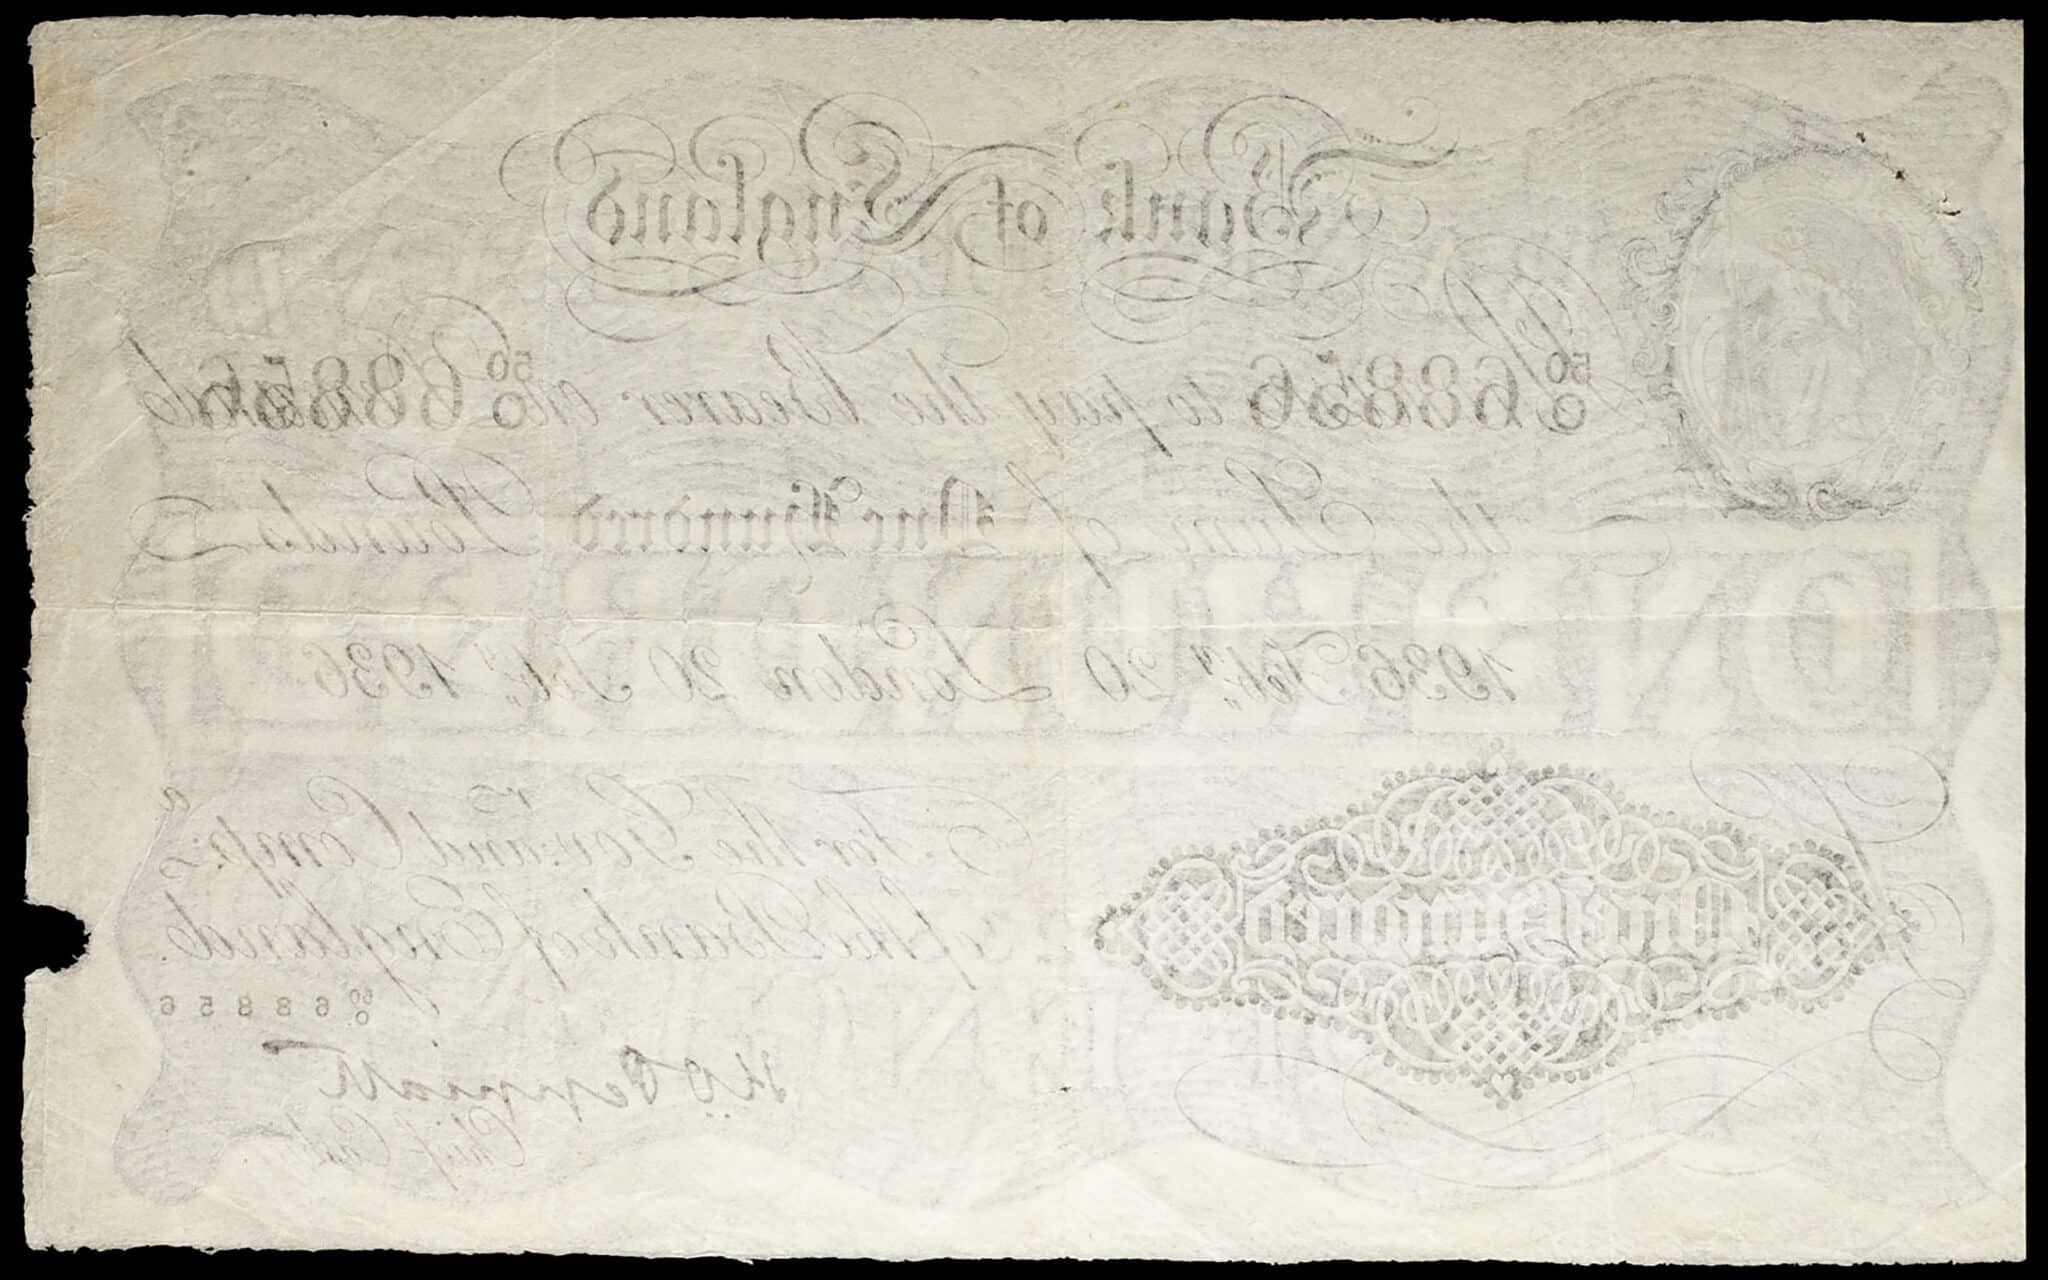 Bank of England
50/O 68856 50/O 68856
I Promise to pay the Bearer on Demand
the Sum of One Hundred Pounds
1936 Feby. 20 London 20 Feby. 1936
For the Govr. and Compa.
of the Bank of England.
One Hundred
50/O 68856
K.O. Peppiatt
Chief Cashier